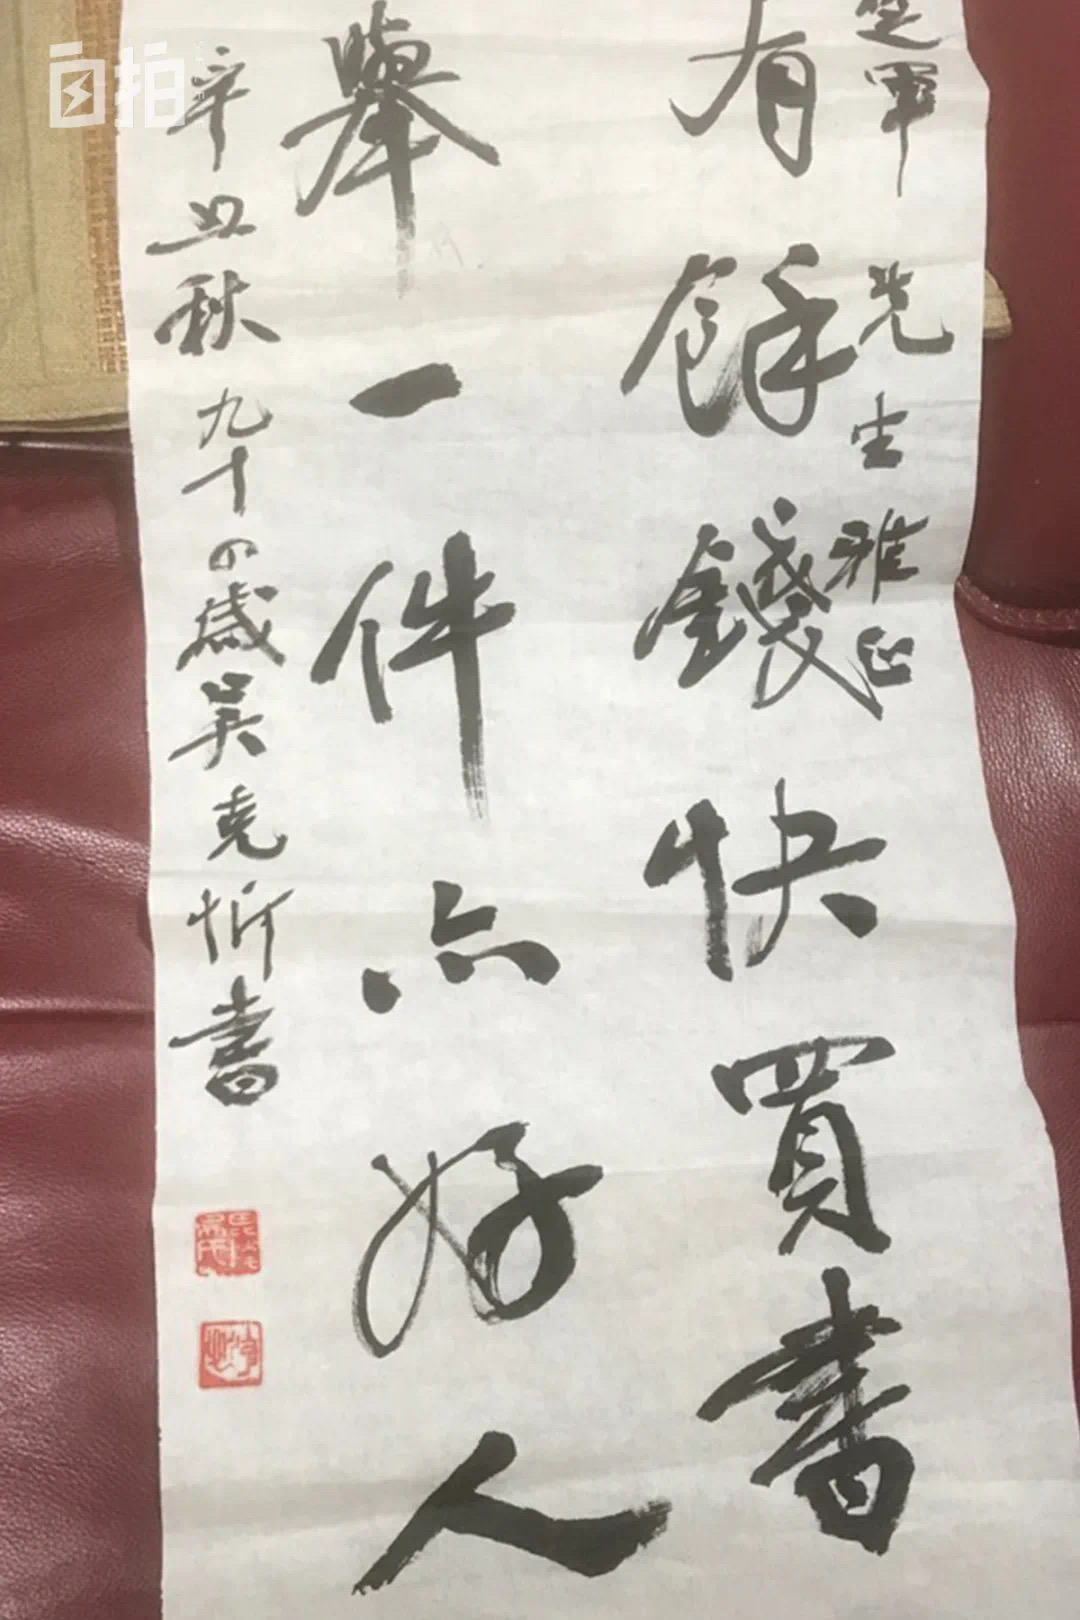 軍先生雅正
有餘錢快買書
舉一件亦好人
辛丑秋九十四歲吴克忻書
自拍